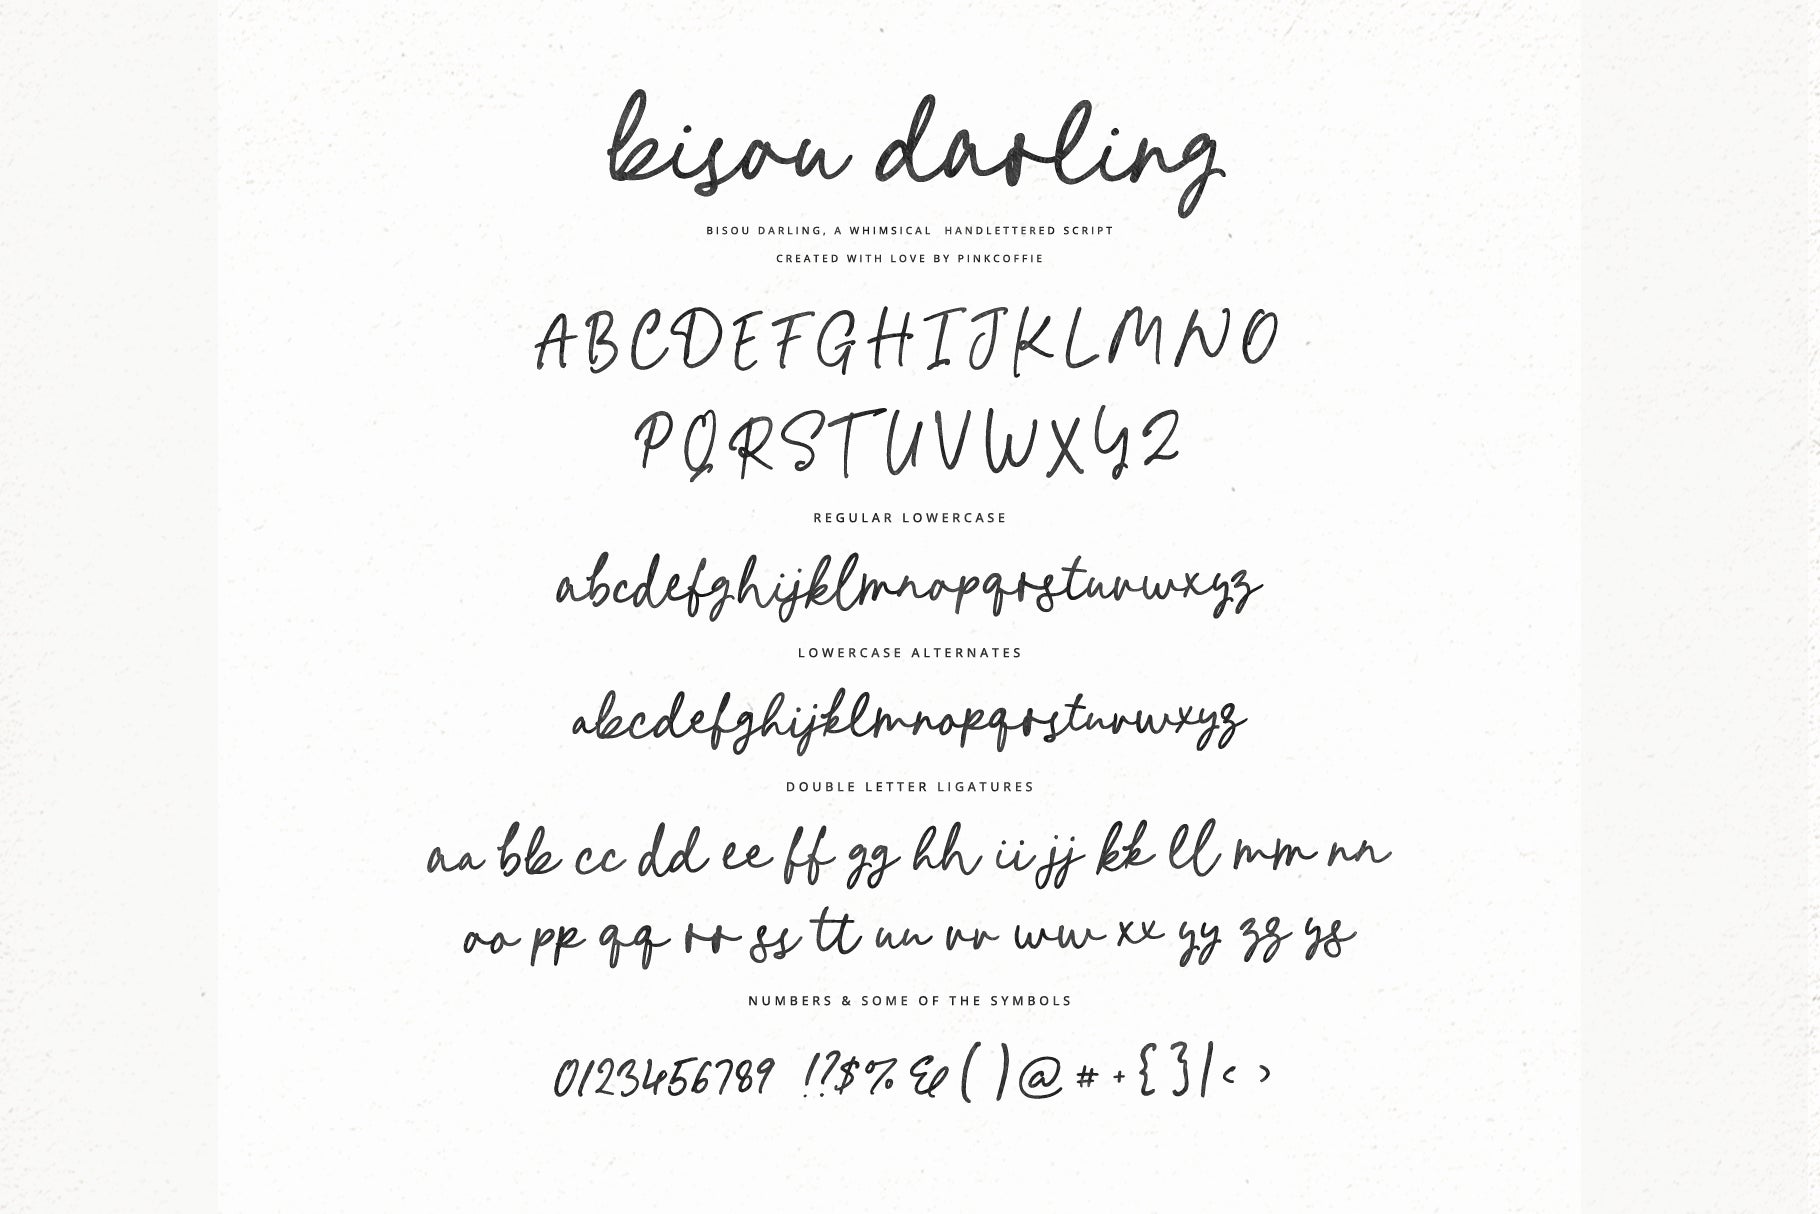 bisou darling
BISOU DARLING, A WHIMSICAL HANDLETTERED SCRIPT
CREATED WITH LOVE BY PINKCOFFIE
ABCDEFGHIJKLMNO
PQRSTUVWXYZ
REGULAR LOWERCASE
abcdefghijklmnopqrstuvwxyz
LOWERCASE ALTERNATES
abcdefghijklmnopqrstuvwxyz
DOUBLE LETTER LIGATURES
aa bb cc dd ee ff gg hh ii jj kk ll mm nn
oo pp qq rr ss tt uu vv ww xx yy zz ys
NUMBERS & SOME OF THE SYMBOLS
0123456789 !?$%&()@#+{}|<>